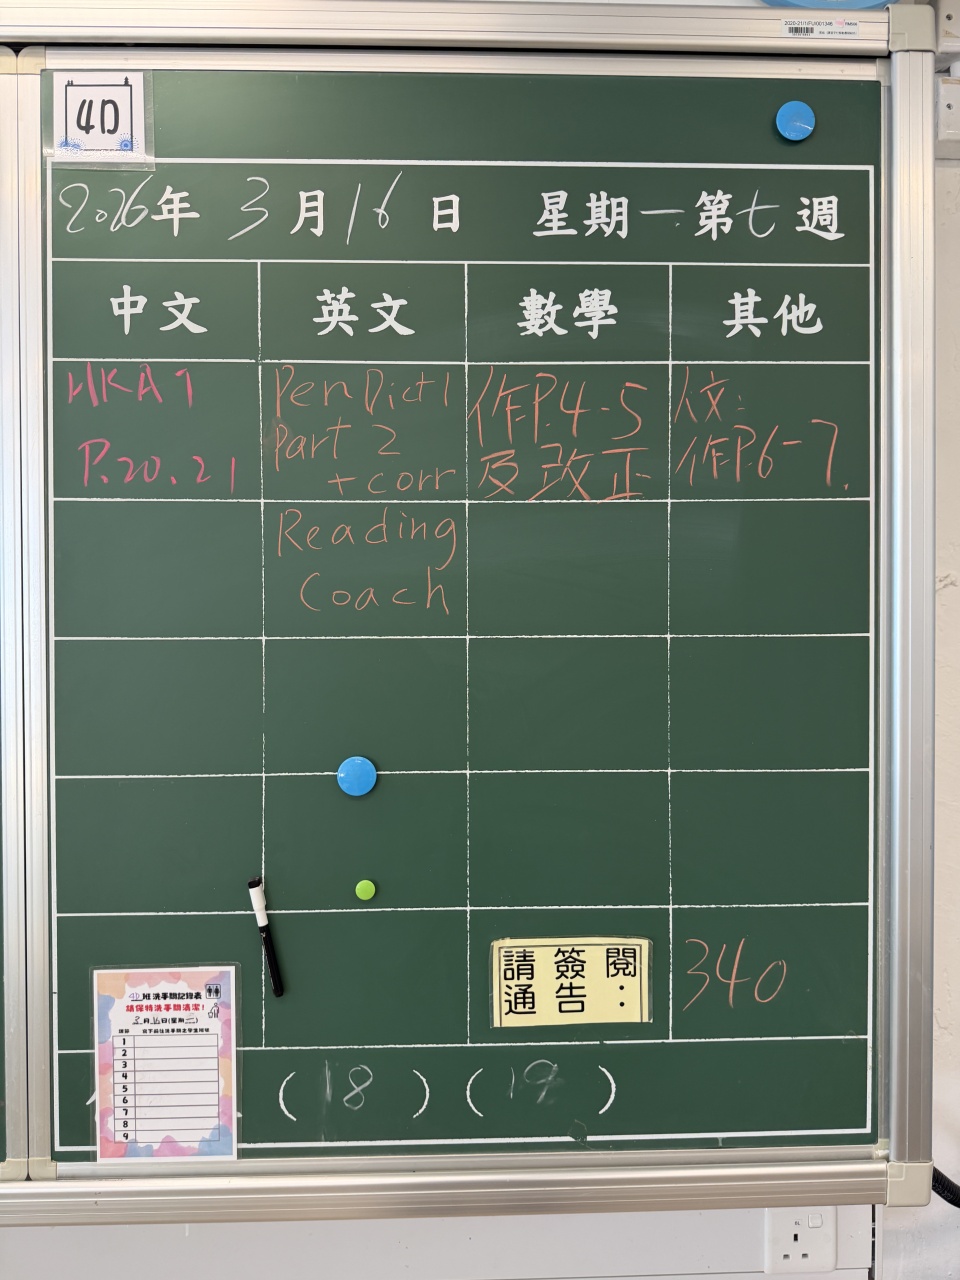 4D
2026年 3月16日 星期一 第七週
中文 英文 數學 其他
HKA1
P.20.21
Pen Dict 1
Part 2
+ corr
作P.4-5
及改正
作P.6-7.
Reading
Coach
請簽閱:
通告
340
4D班洗手間記錄表
請保持洗手間清潔!
3月16日(星期一)
1
2
3
4
5
6
7
8
9
(18) (19)